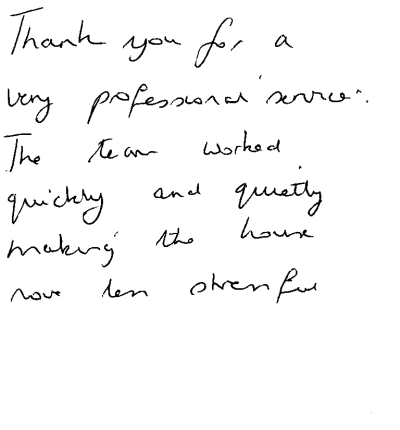 Thank you for a
very professional service.
The team worked
quickly and quietly
making the house
move less stressful